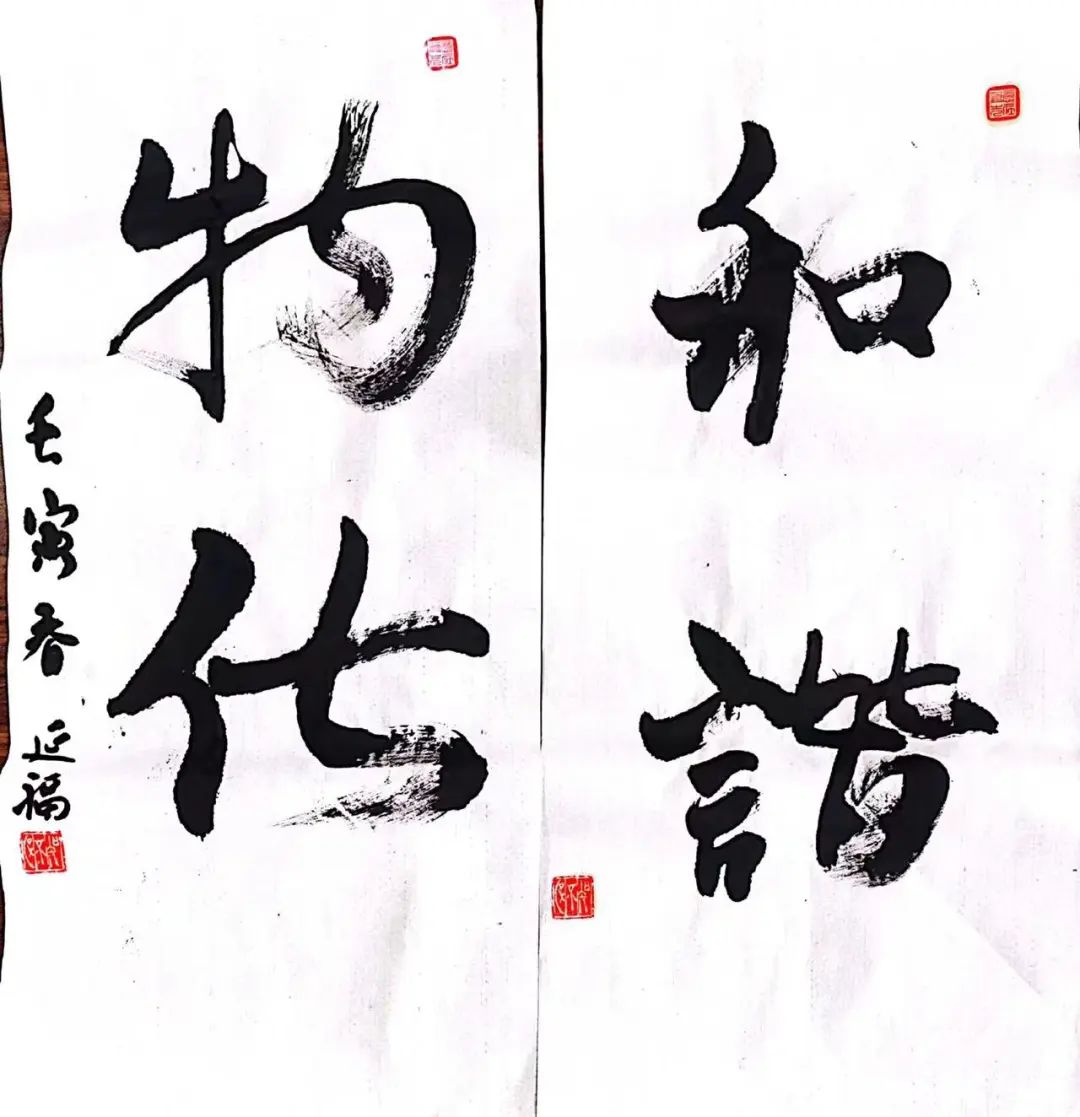 和
谐
物
化
壬寅春 延福